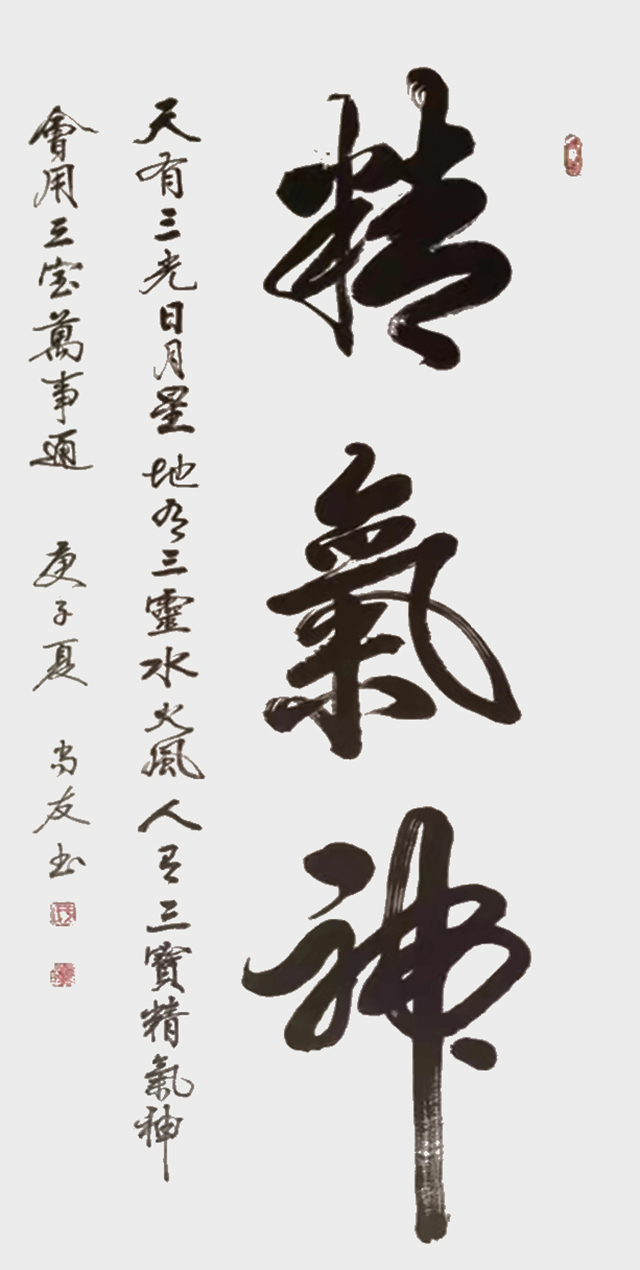 精氣神
天有三光日月星地有三靈水火風人有三寶精氣神
會用三宝萬事通 庚子夏 尚友书